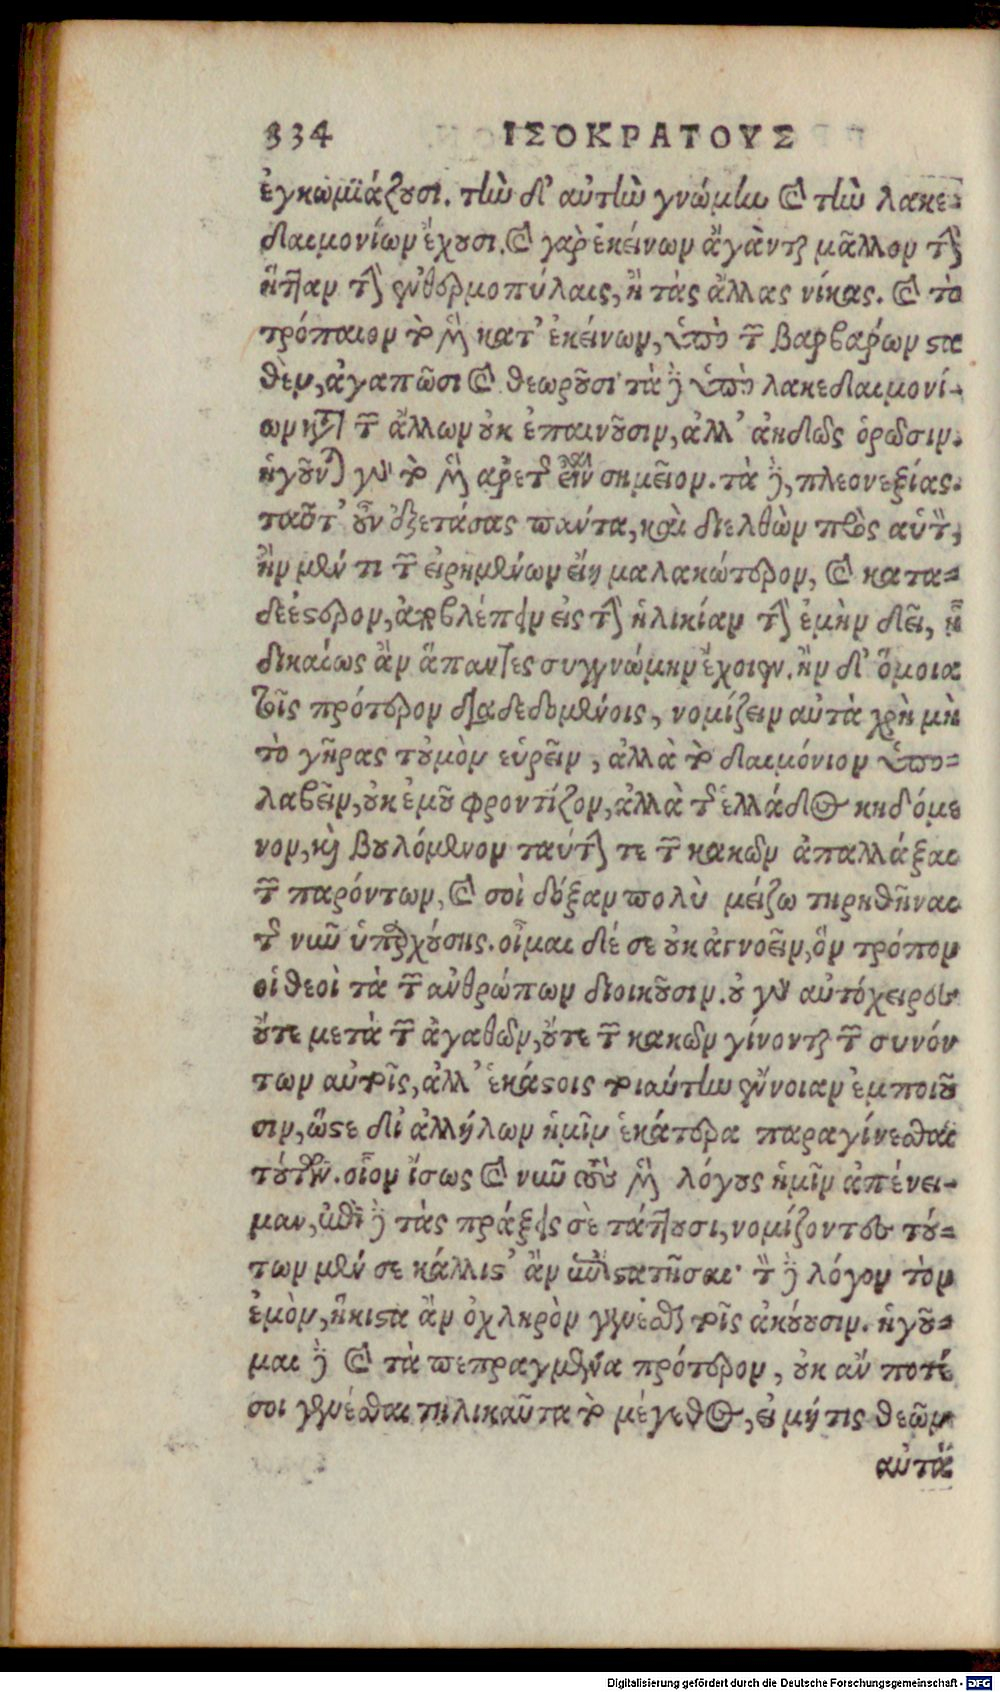 334 ΙΣΟΚΡΑΤΟΥΣ
ἐγκωμιάζουσι. τὴν δ' αὐτὴν γνώμην καὶ τὴν λακε-
δαιμονίων ἔχουσι. καὶ γὰρ ἐκείνων ἄγανται μᾶλλον τὴν
ἧτταν τὴν ἐν θερμοπύλαις, ἢ τὰς ἄλλας νίκας. καὶ τὸ
τρόπαιον τὸ μὲν κατ' ἐκείνων, ὑπὸ τῶν βαρβάρων στα
θὲν, ἀγαπῶσι καὶ θεωροῦσι· τὰ δὲ ὑπὸ λακεδαιμονί-
ων κατὰ τῶν ἄλλων οὐκ ἐπαινοῦσιν, ἀλλ' ἀηδῶς ὁρῶσιν.
ἡγοῦνται γὰρ τὸ μὲν ἀρετῆς εἶναι σημεῖον. τὰ δὲ, πλεονεξίας.
ταῦτ' οὖν ἐξετάσας πάντα, καὶ διελθὼν πρὸς αὑτὸν,
ἢν μέν τι τῶν εἰρημένων εἴη μαλακώτερον, καὶ κατα-
δεέστερον, ἀποβλέπειν εἰς τὴν ἡλικίαν τὴν ἐμὴν δεῖ, ᾗ
δικαίως ἂν ἅπαντες συγγνώμην ἔχοιεν. ἢν δ' ὅμοια
τοῖς πρότερον διαδεδομένοις, νομίζειν αὐτὰ χρὴ μὴ
τὸ γῆρας τοὐμὸν εὑρεῖν, ἀλλὰ τὸ δαιμόνιον ὑπο-
λαβεῖν, οὐκ ἐμοῦ φροντίζον, ἀλλὰ τῆς ἑλλάδος κηδόμε
νον, καὶ βουλόμενον ταύτην τε τῶν κακῶν ἀπαλλάξαι
τῶν παρόντων, καὶ σοὶ δόξαν πολὺ μείζω τηρηθῆναι
τῆς νῦν ὑπαρχούσης. οἶμαι δέ σε οὐκ ἀγνοεῖν, ὃν τρόπον
οἱ θεοὶ τὰ τῶν ἀνθρώπων διοικοῦσιν. οὐ γὰρ αὐτόχειρες
οὔτε μετὰ τῶν ἀγαθῶν, οὔτε τῶν κακῶν γίνονται τῶν συνόν
των αὐτοῖς, ἀλλ' ἑκάστοις τοιαύτην ἔννοιαν ἐμποιοῦ
σιν, ὥστε δι' ἀλλήλων ἡμῖν ἑκάτερα παραγίνεσθαι
τούτων. οἷον ἴσως καὶ νῦν τοὺς μὲν λόγους ἡμῖν ἀπένει-
μαν, ἐπὶ δὲ τὰς πράξεις σὲ τάττουσι, νομίζοντες τού-
των μέν σε κάλλιστ' ἂν ἐπιστατῆσαι· τὸν δὲ λόγον τὸν
ἐμὸν, ἥκιστα ἂν ὀχληρὸν γενέσθαι τοῖς ἀκούουσιν. ἡγοῦ-
μαι δὲ καὶ τὰ πεπραγμένα πρότερον, οὐκ ἄν ποτέ
σοι γενέσθαι τηλικαῦτα τὸ μέγεθος, εἰ μή τις θεῶν
αὐτὰ
Digitalisierung gefördert durch die Deutsche Forschungsgemeinschaft - DFG